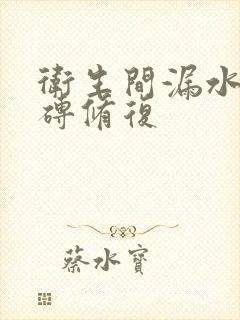 衛生間漏水
磚脩復
蔡水寶